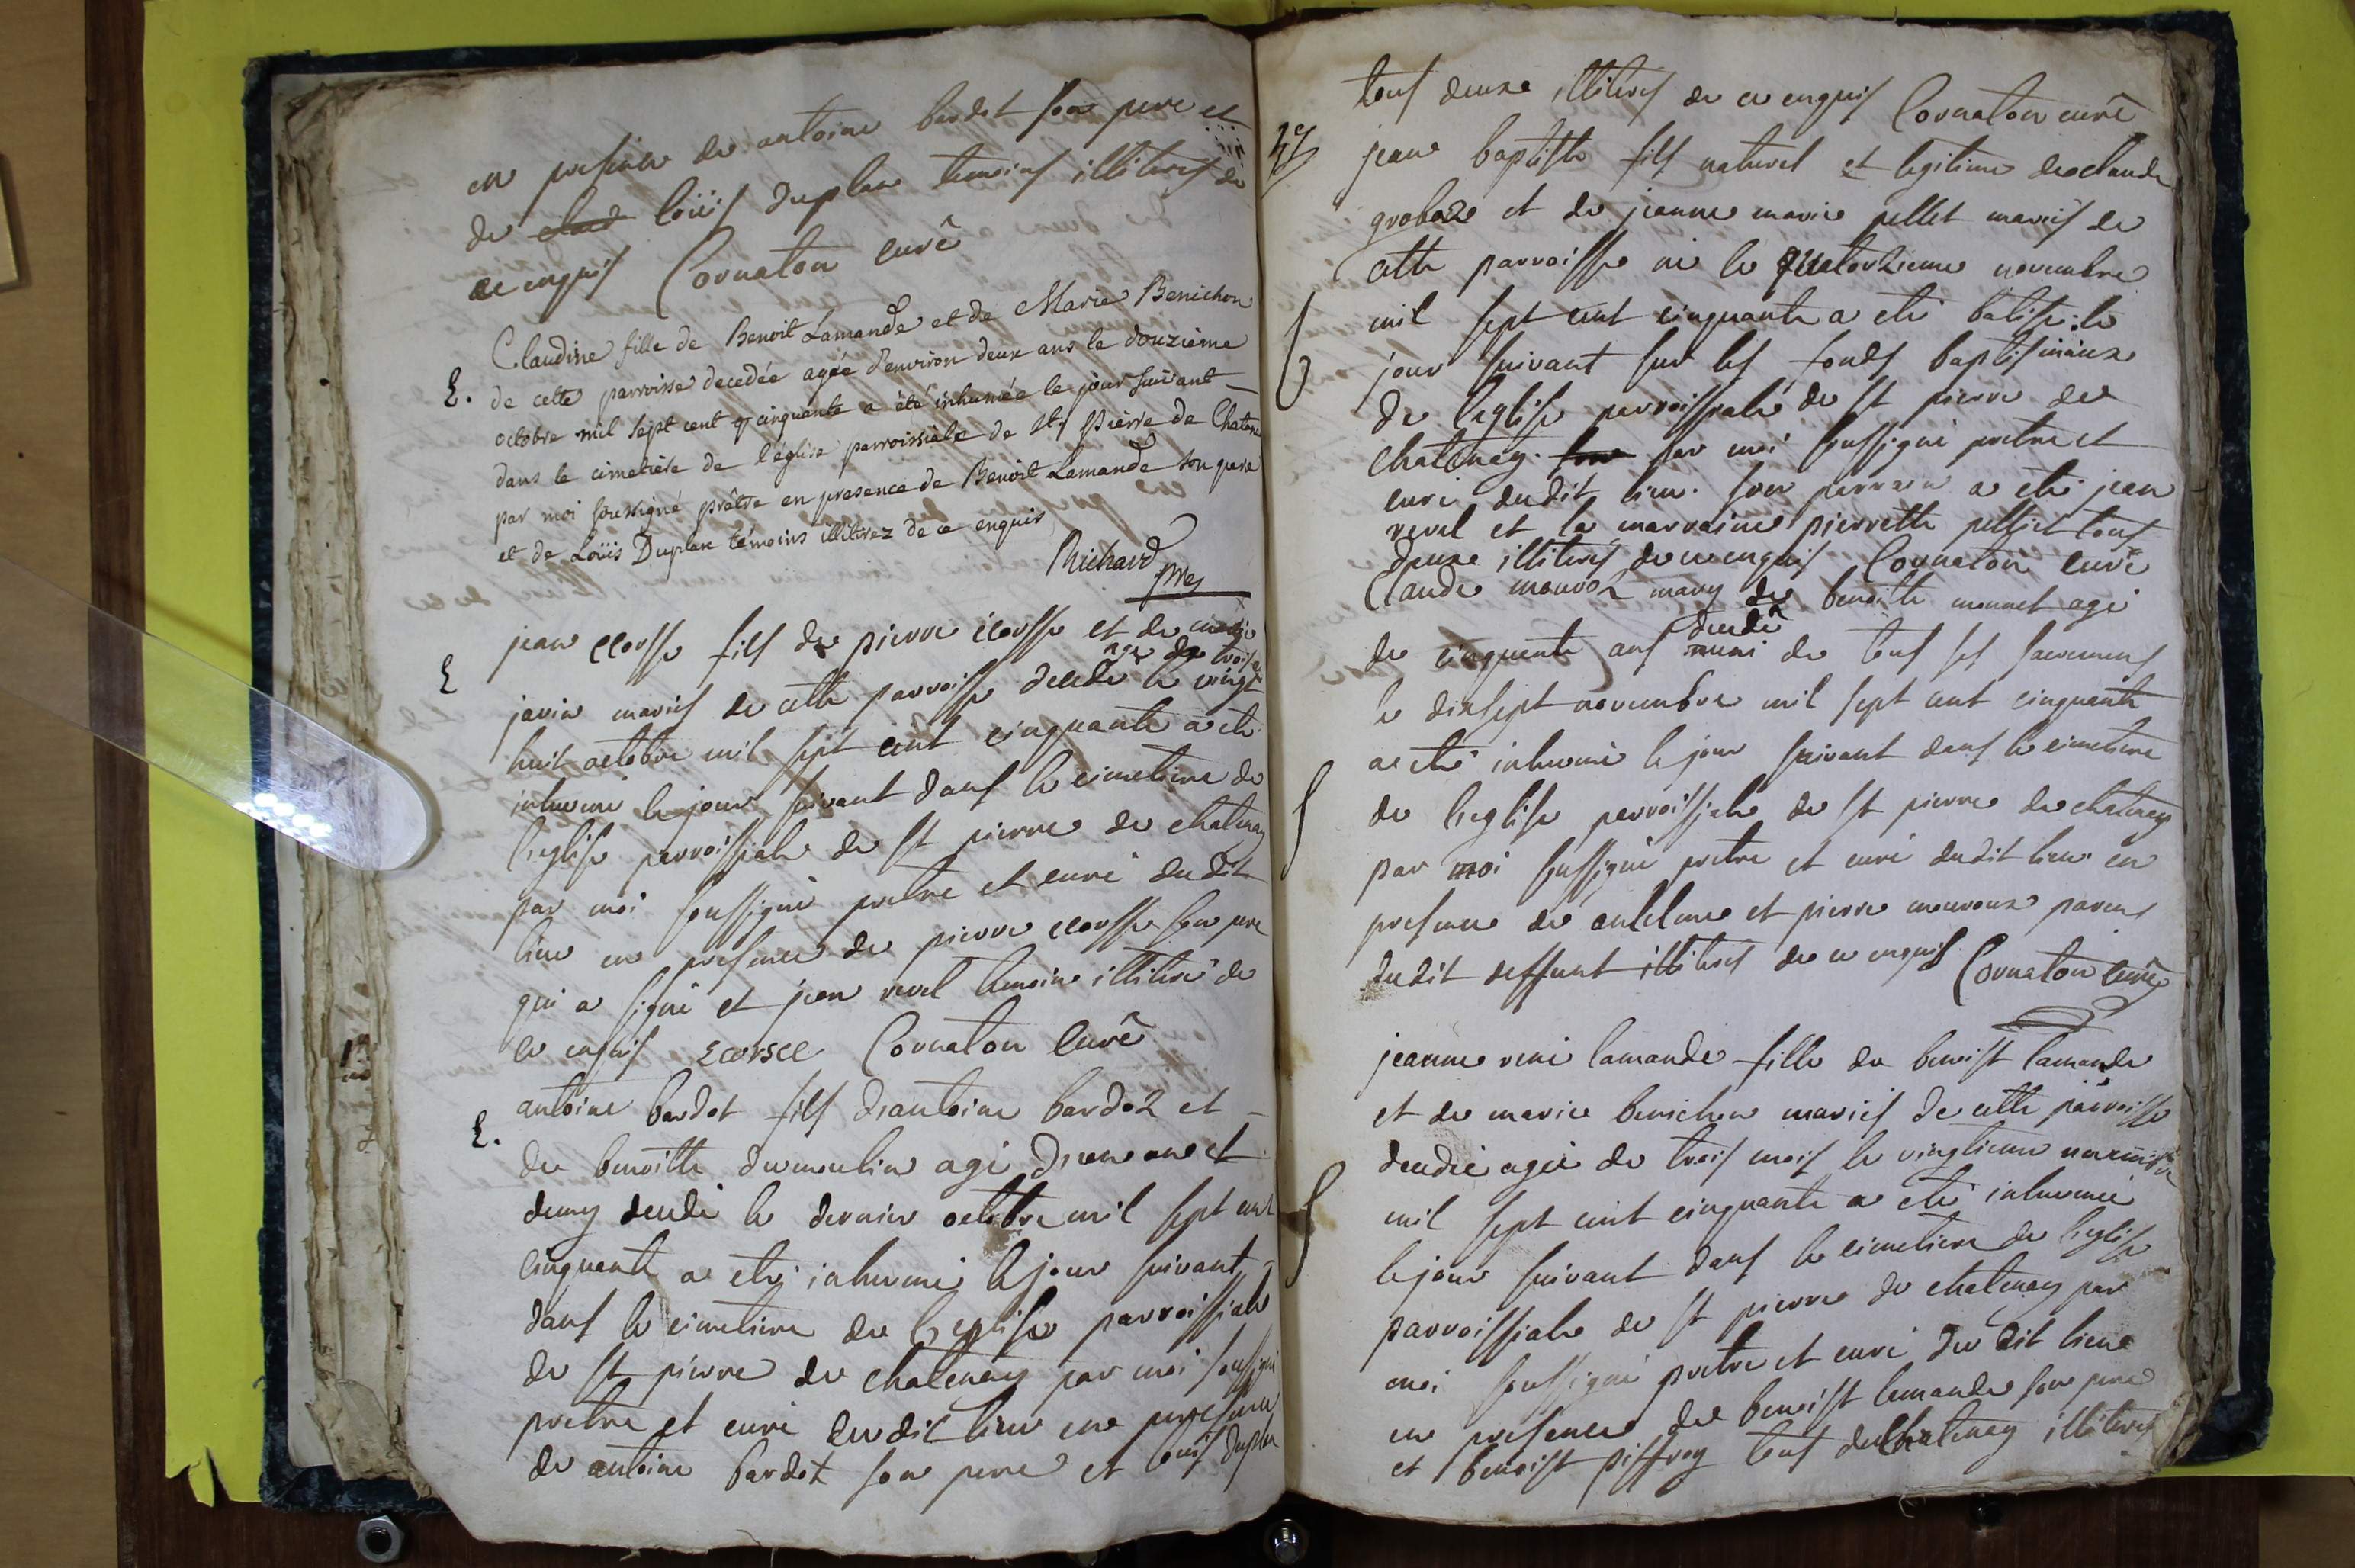 en presence de antoine bardet son pere et
de loüis duplan temoins illiterés de
ce enquis Cornaton curê
Claudine fille de Benoit Lamande et de Marie Benichon
E. de cette parroisse decedée agée d'environ deux ans le douzième
octobre mil sept cent cinquante a été inhumée le jour suivant
dans le cimetière de l'église parroissiale de St Pierre de Chatene
par moi soussigné prêtre en presence de Benoit Lamande son pere
et de Loüis Duplan témoins illitirez de ce enquis
Richard
ptre
E jean ecorsse fils de pierre ecorsse et de marie
age de trois
javin mariés de cette parroisse decede le vingt
huit octobre mil sept cent cinquante a ete
inhumé le jour suivant dans le cimetiere de
l'eglise parroissiale de st pierre de chatenay
par moi soussigné pretre et curé dudit
lieu en presence de pierre ecorsse son pere
qui a signé et jean revel temoin illiteré de
ce enquis Ecorsse Cornaton Curê
antoine bardot fils d'antoine bardoz et
E. de benoitte dumoulin agé d'un an et
demy decedé le dernier octobre mil sept cent
cinquante a eté inhumé le jour suivant
dans le cimetiere de l'eglise parroissiale
de st pierre de chatenay par moi soussigné
pretre et curé dudit lieu en presence
de antoine bardot son pere et loüis duplan
tous deux illiterés de ce enquis Cornaton curê
47
jean baptiste fils naturel et legitime de claude
groboz et de jeanne marie pellet mariés de
cette parroisse né le quatorzieme novembre
mil sept cent cinquante a eté batisé le
jour suivant sur les fonds baptismaux
de l'eglise parroissiale de st pierre de
chatenay par moi soussigné pretre et
curé dudit lieu. son parrain a eté jean
revel et la marraine pierrette pellet tous
deux illiterés de ce enquis Cornaton Curê
Claude mouroz mary de benoitte monnet agé
decedê
de cinquante ans muni de tous ses sacremens
le dixsept novembre mil sept cent cinquante
a eté inhumé le jour suivant dans le cimetiere
de l'eglise parroissiale de st pierre de chatenay
par moi soussigné pretre et curé dudit lieu en
presence de antelme et pierre mouroux parens
dudit deffunt illiterés de ce enquis Cornaton curê
jeanne rené lamande fille de benoist lamande
et de marie benichon mariés de cette parroisse
decedée agée de trois mois le vingtieme novembre
mil sept cent cinquante a eté inhumée
le jour suivant dans le cimetiere de l'eglise
parroissiale de st pierre de chatenay par
moi soussigné pretre et curé du dit lieu
en presence de benoist lemande son pere
et benoist piffroy tous de Chatenay illiterés